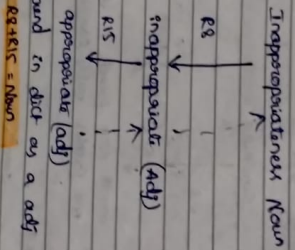 Inappropriateness Noun
R8
inappropriate (Adj)
R15
appropriate (adj)
ound in dict as a adj
R8+R15 = Noun